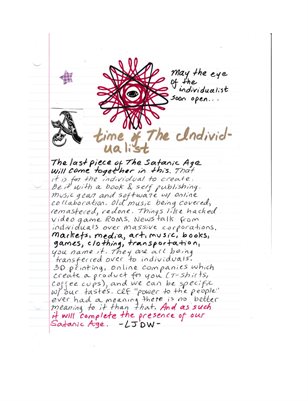 May the eye
of the
individualist
soon open...
A
time of The Individ-
ualist
The last piece of The Satanic Age
will come together in this. That
it is for the individual to create.
Be it with a book & self publishing.
Music gear and software w/ online
collaboration. Old music being covered,
remastered, redone. Things like hacked
video game Roms. News talk from
individuals over massive corporations.
Markets, media, art, music, books,
games, clothing, transportation,
you name it. They are all being
transferred over to individuals.
3D printing, online companies which
create a product for you (T-shirts,
coffee cups), and we can be specific
w/ our tastes. If "power to the people"
ever had a meaning there is no better
meaning to it than that. And as such
it will complete the presence of our
Satanic Age. -LJDW-